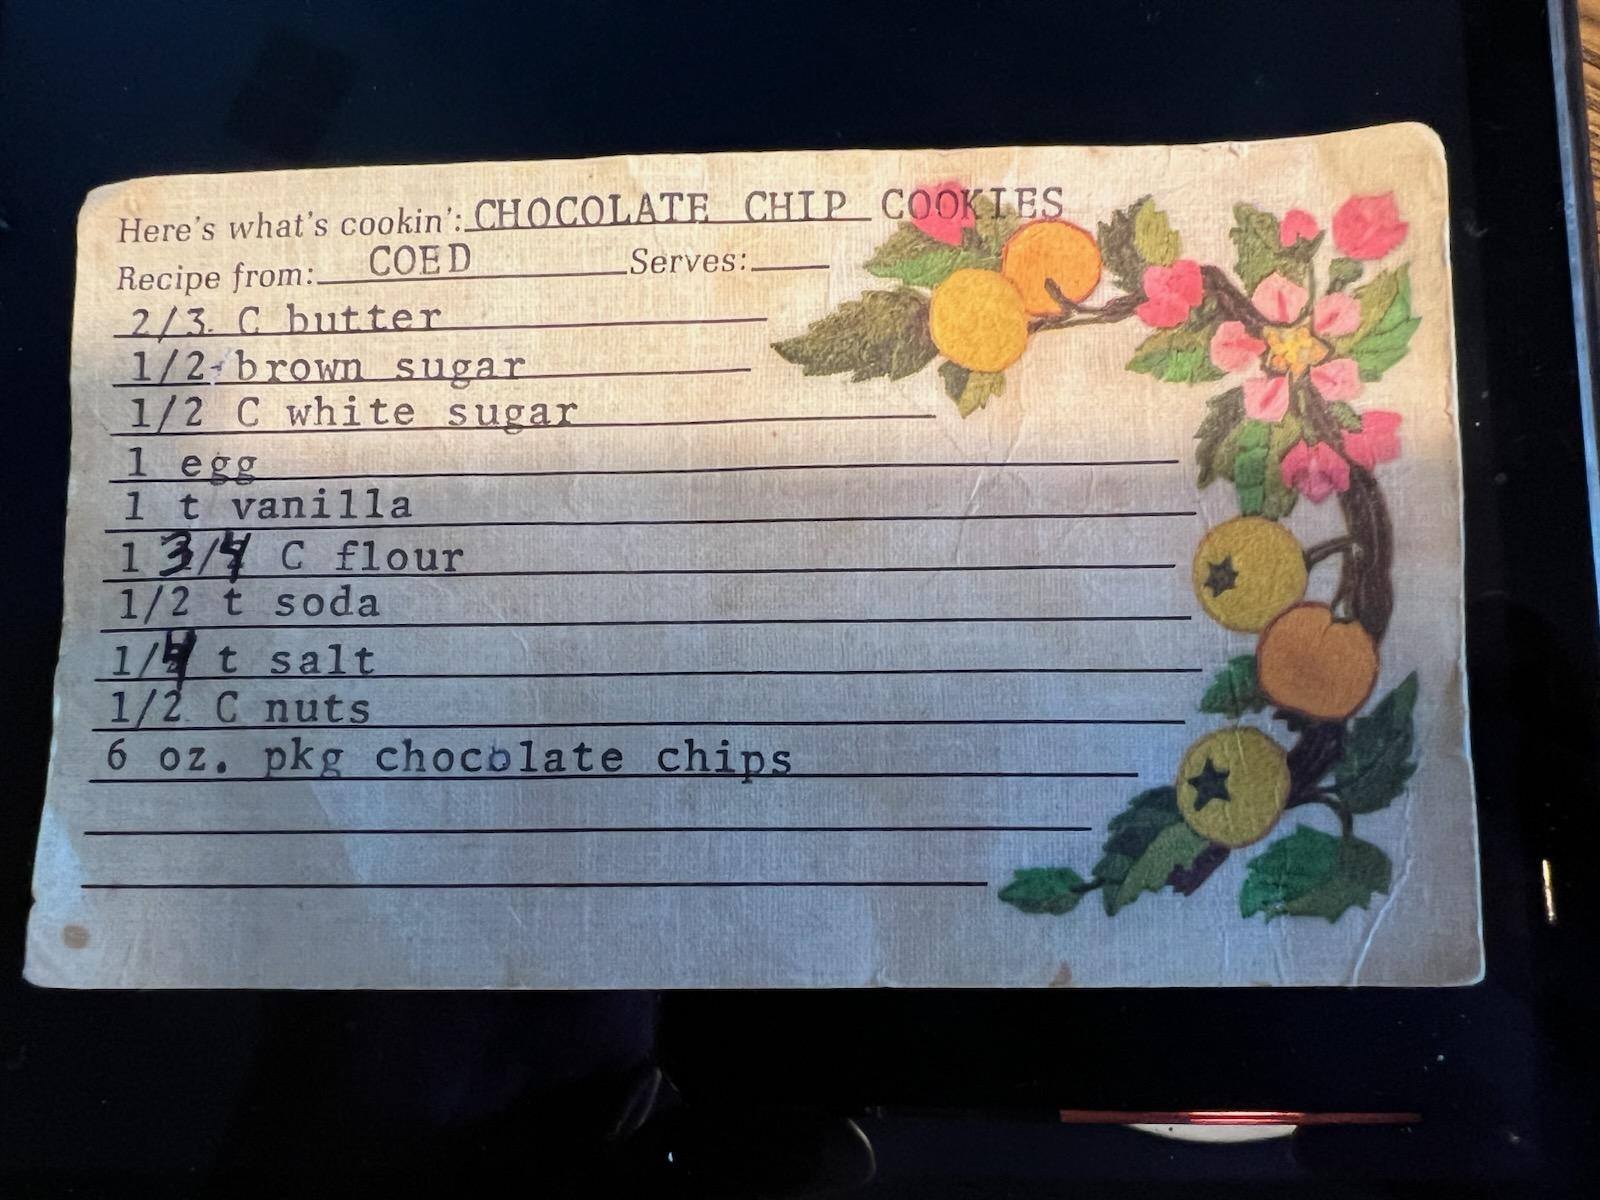 Here's what's cookin': CHOCOLATE CHIP COOKIES
Recipe from: COED Serves:
2/3 C butter
1/2 brown sugar
1/2 C white sugar
1 egg
1 t vanilla
1 3/4 C flour
1/2 t soda
1/4 t salt
1/2 C nuts
6 oz. pkg chocolate chips